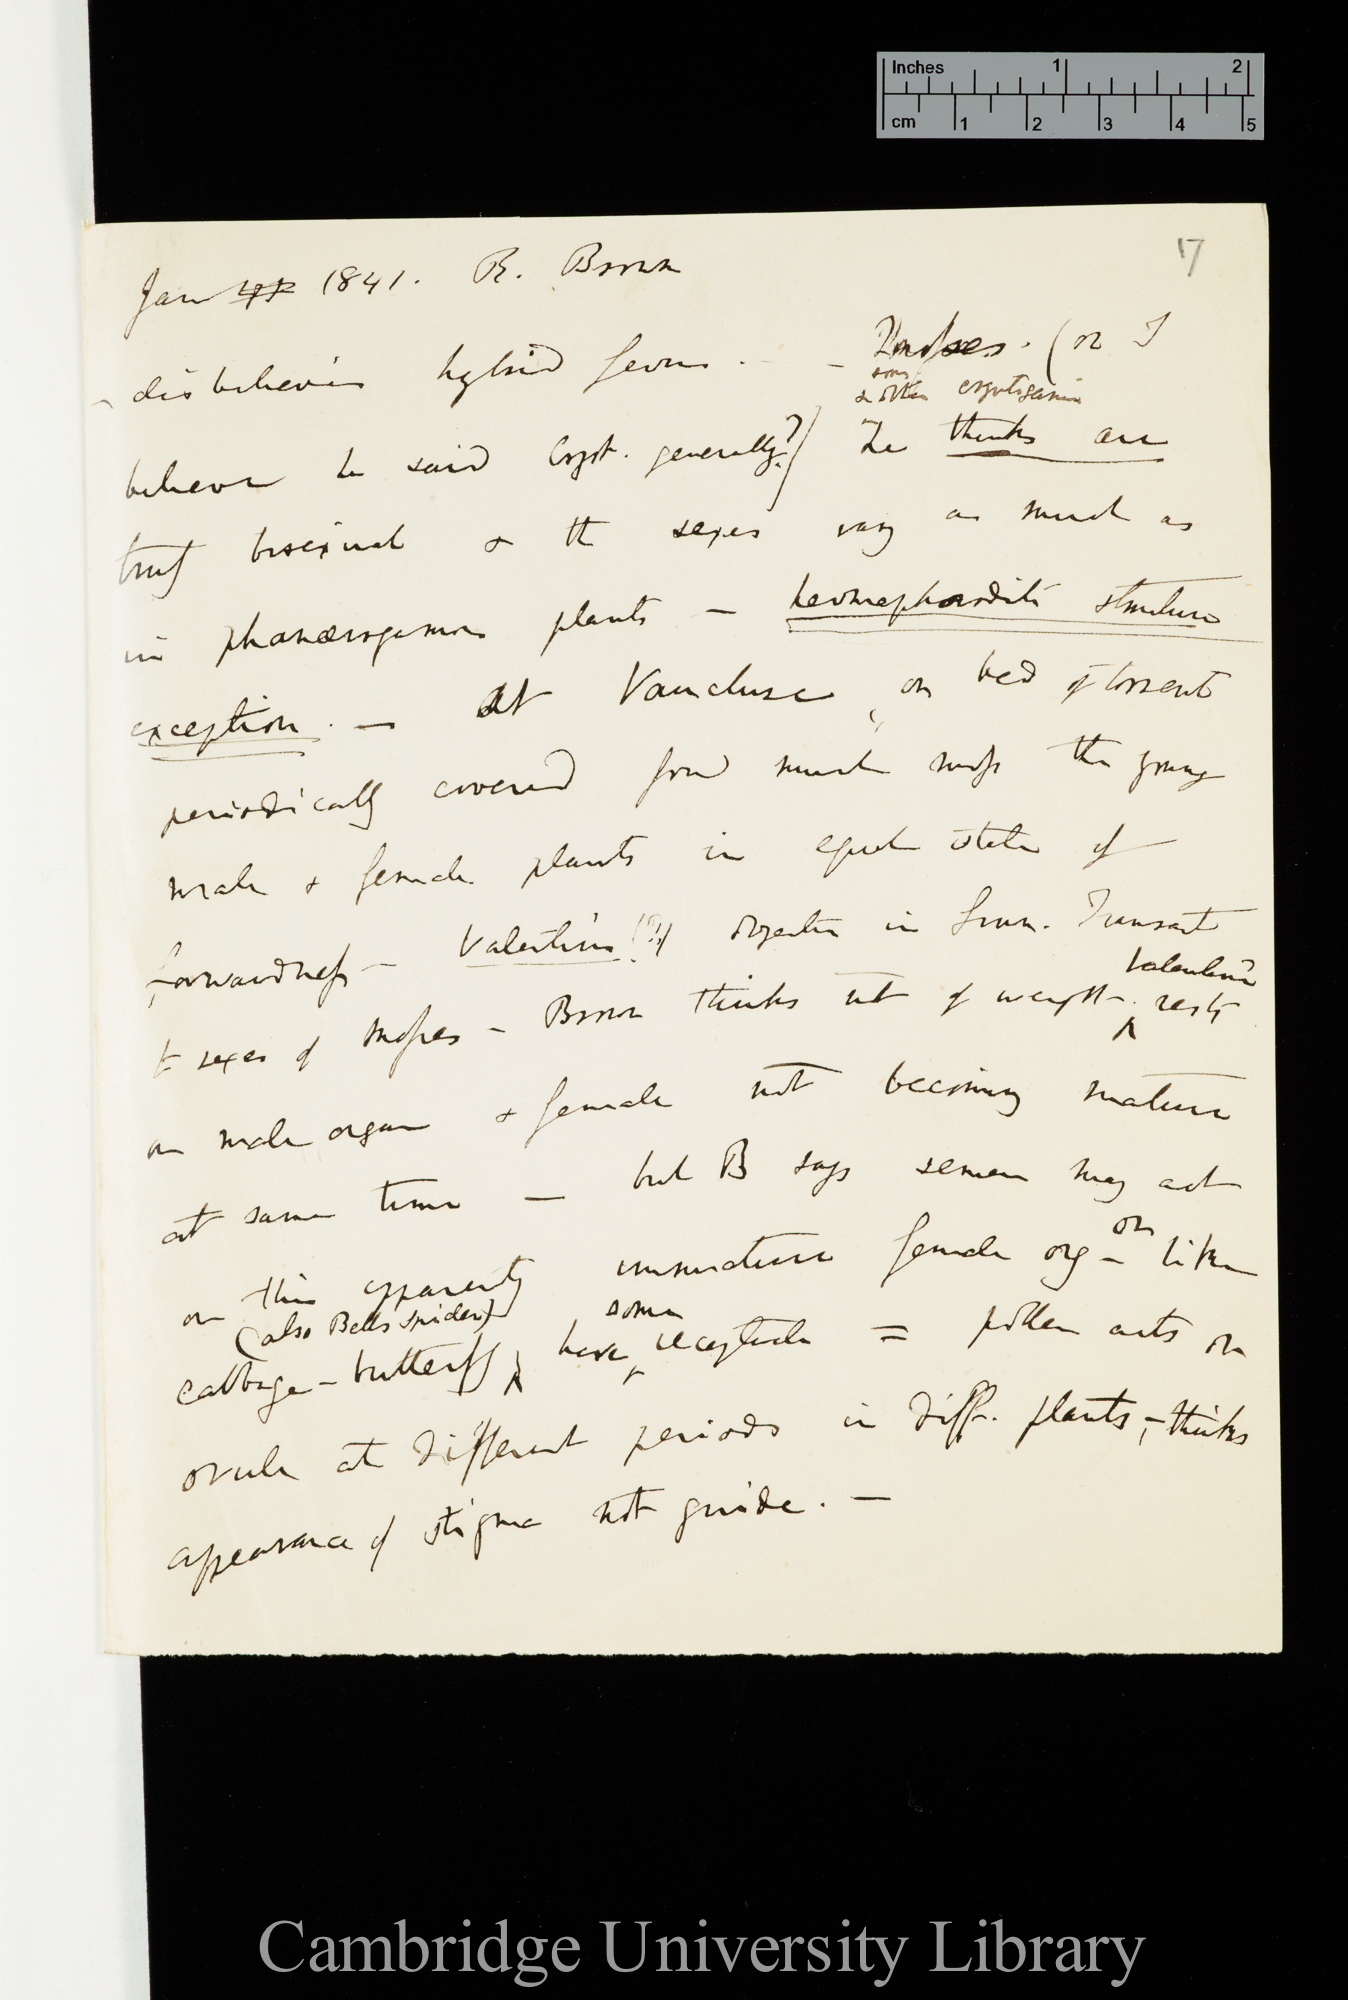 Inches 1 2
cm 1 2 3 4 5
17
Jan 1841. R. Brown
disbelieves hybrid ferns. — Mosses. (or I
& other cryptogamia
believe he said Crypt. generally?) He thinks are
truly bisexual & the sexes vary as much as
in phanærogamous plants — hermaphrodite structure
exception. — At Vaucluse, on bed of torrent
periodically covered found much moss the young
male & female plants in equal state of
forwardness — Valentine (?) objects in Linn. Transact
to sexes of mosses — Brown thinks not of weight —
Valentine rests
on male organ & female not becoming mature
at same time — but B says semen may act
on this apparently immature female organ — like
(also Bells Spider)
cabbage-butterfly, have some receptacle = pollen acts on
ovule at different periods in diff. plants, — thinks
appearance of stigma not guide. —
Cambridge University Library